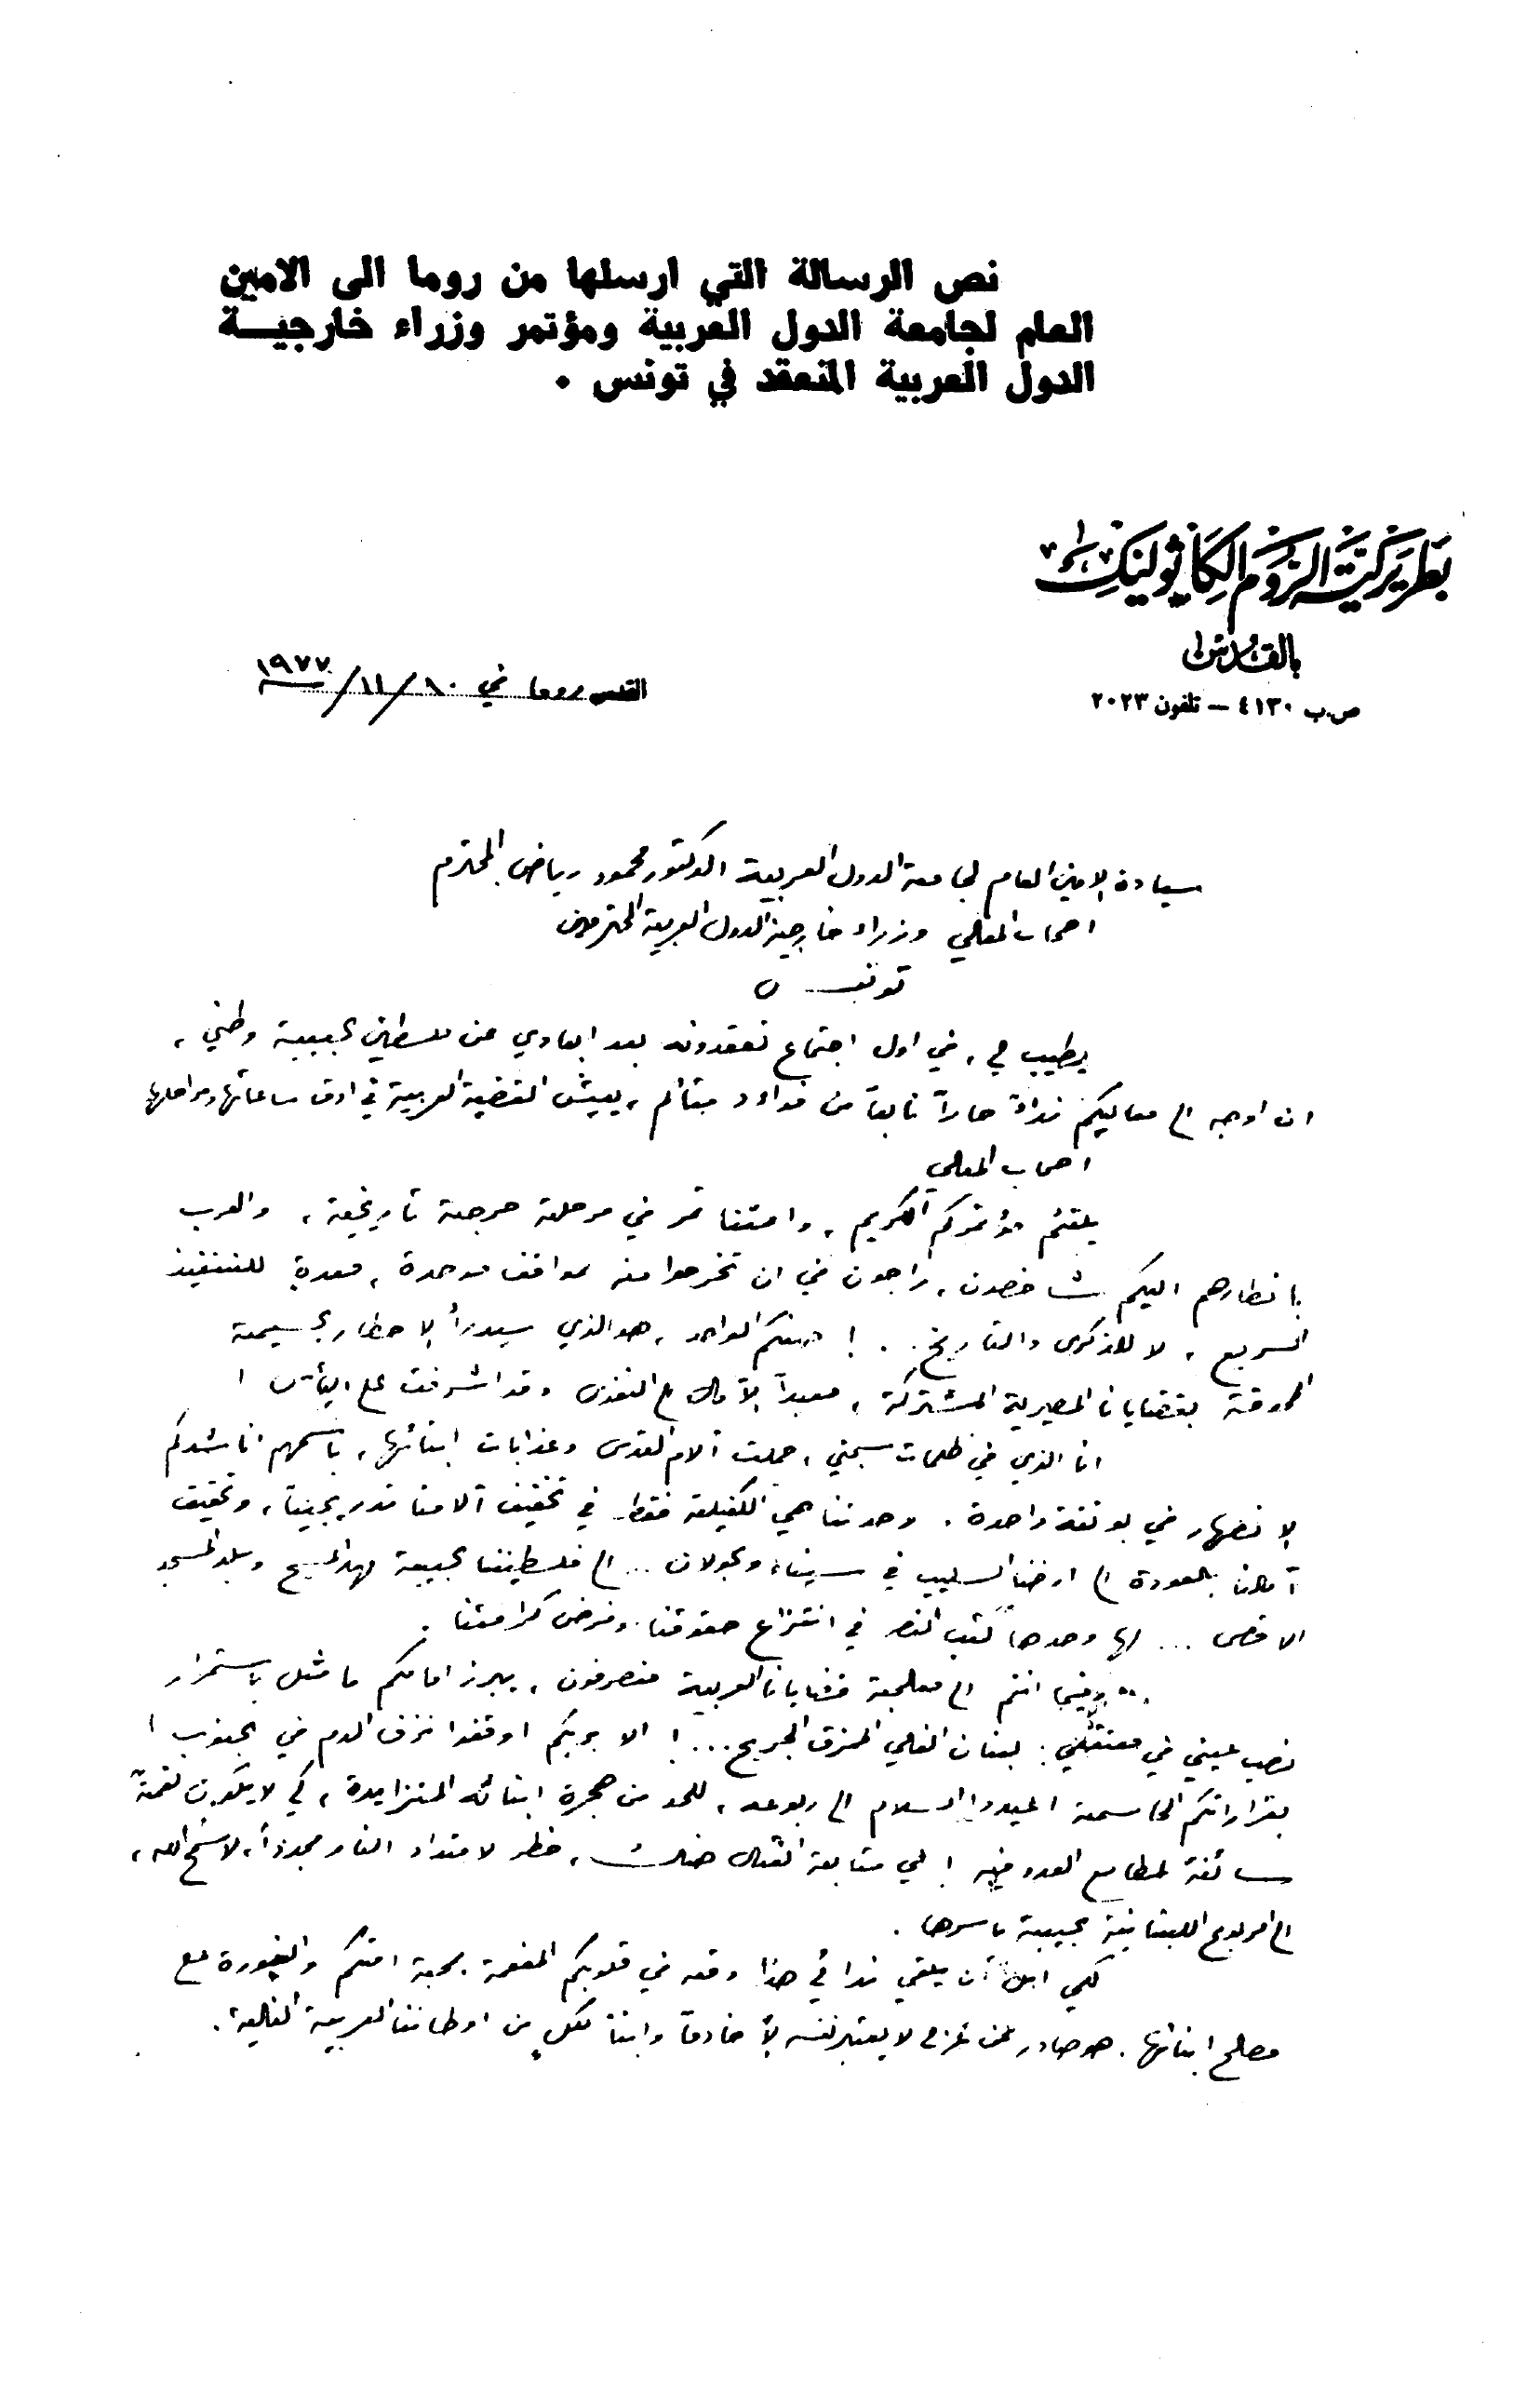 نص الرسالة التي ارسلها من روما الى الامين
العام لجامعة الدول العربية ومؤتمر وزراء خارجيـــة
الدول العربية المنعقد في تونس .
بَطريَركيّة الرّوم الكاثوليك
بالقدس
ص.ب ٤١٣٠ – تلفون ٢٠٢٣
القدس روما في ١٠/١١/١٩٧٧
سيادة الامين العام لجامعة الدول العربية الدكتور محمود رياض المحترم
اصحاب المعالي وزراء خارجية الدول العربية المحترمين
تونس
يطيب لي ، في اول اجتماع تعقدونه بعد ابعادي عن فلسطين الحبيبة وطني ،
ان اوجه الى معاليكم نداءً حاراً نابعاً من فؤاد متألم ، يعيش القضية العربية في ادق ساعاتها ومراحلها
اصحاب المعالي
يلتئم مؤتمركم الكريم ، وامتنا تمر في مرحلة حرجة تاريخية ، والعرب
بانظارهم اليكم شاخصون ، راجون في ان تخرجوا منه بمواقف موحدة ، معدة للتنفيذ
السريع ، لا للذكرى والتاريخ .. ! صفكم الواحد ، هو الذي سيدرأ الاخطار الجسيمة
المحدقة بقضايانا المصيرية المشتركة ، معيداً الآمال الى النفوس وقد اشرفت على اليأس !
انا الذي في ظلمات سجني ، حملت آلام القدس وعذابات ابنائها ، باسمهم اناشدكم
الانصهار في بوتقة واحدة . وحدتنا هي الكفيلة فقط في تخفيف آلامنا تدريجياً ، وتحقيق
آمالنا بالعودة الى ارضنا السليب في سيناء والجولان ... الى فلسطيننا الحبيبة مهد المسيح وبلد المسجد
الاقصى ... لها وحدها كُتب النصر في انتزاع حقوقنا وفرض كرامتنا .
... وفيما انتم الى معالجة قضايانا العربية منصرفون ، يبرز امامكم ما مثل باستمرار
نصب عيني في معتقلي : لبنان الغالي الممزق الجريح ... ! الا بربكم اوقفوا نزف الدم في الجنوب !
بقراراتكم الحاسمة اعيدوا السلام الى ربوعه ، للحد من هجرة ابنائه المتزايدة ، كي لا يكون لقمة
سائغة لمطامع العدو فيه ! في متابعة القتال هناك ، خطر لامتداد النار مجدداً ، لا سمح الله ،
الى الربوع اللبنانية الحبيبة باسرها .
لكم املٌ ان يلقى ندائي هذا وقعه في قلوبكم المفعمة بمحبة امتكم والغيورة على
مصالح ابنائها . هو صادر عمن لا يعتبر نفسه الا خادماً وابناً لكلٍ من اوطاننا العربية الغالية .